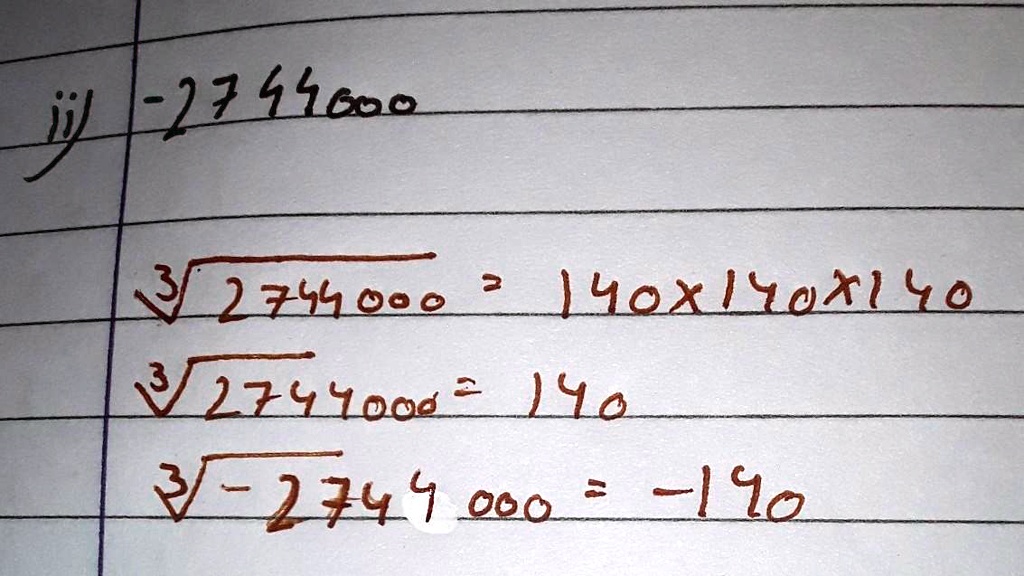 ii) -2744000
∛2744000 = 140×140×140
∛2744000 = 140
∛-2744000 = -140